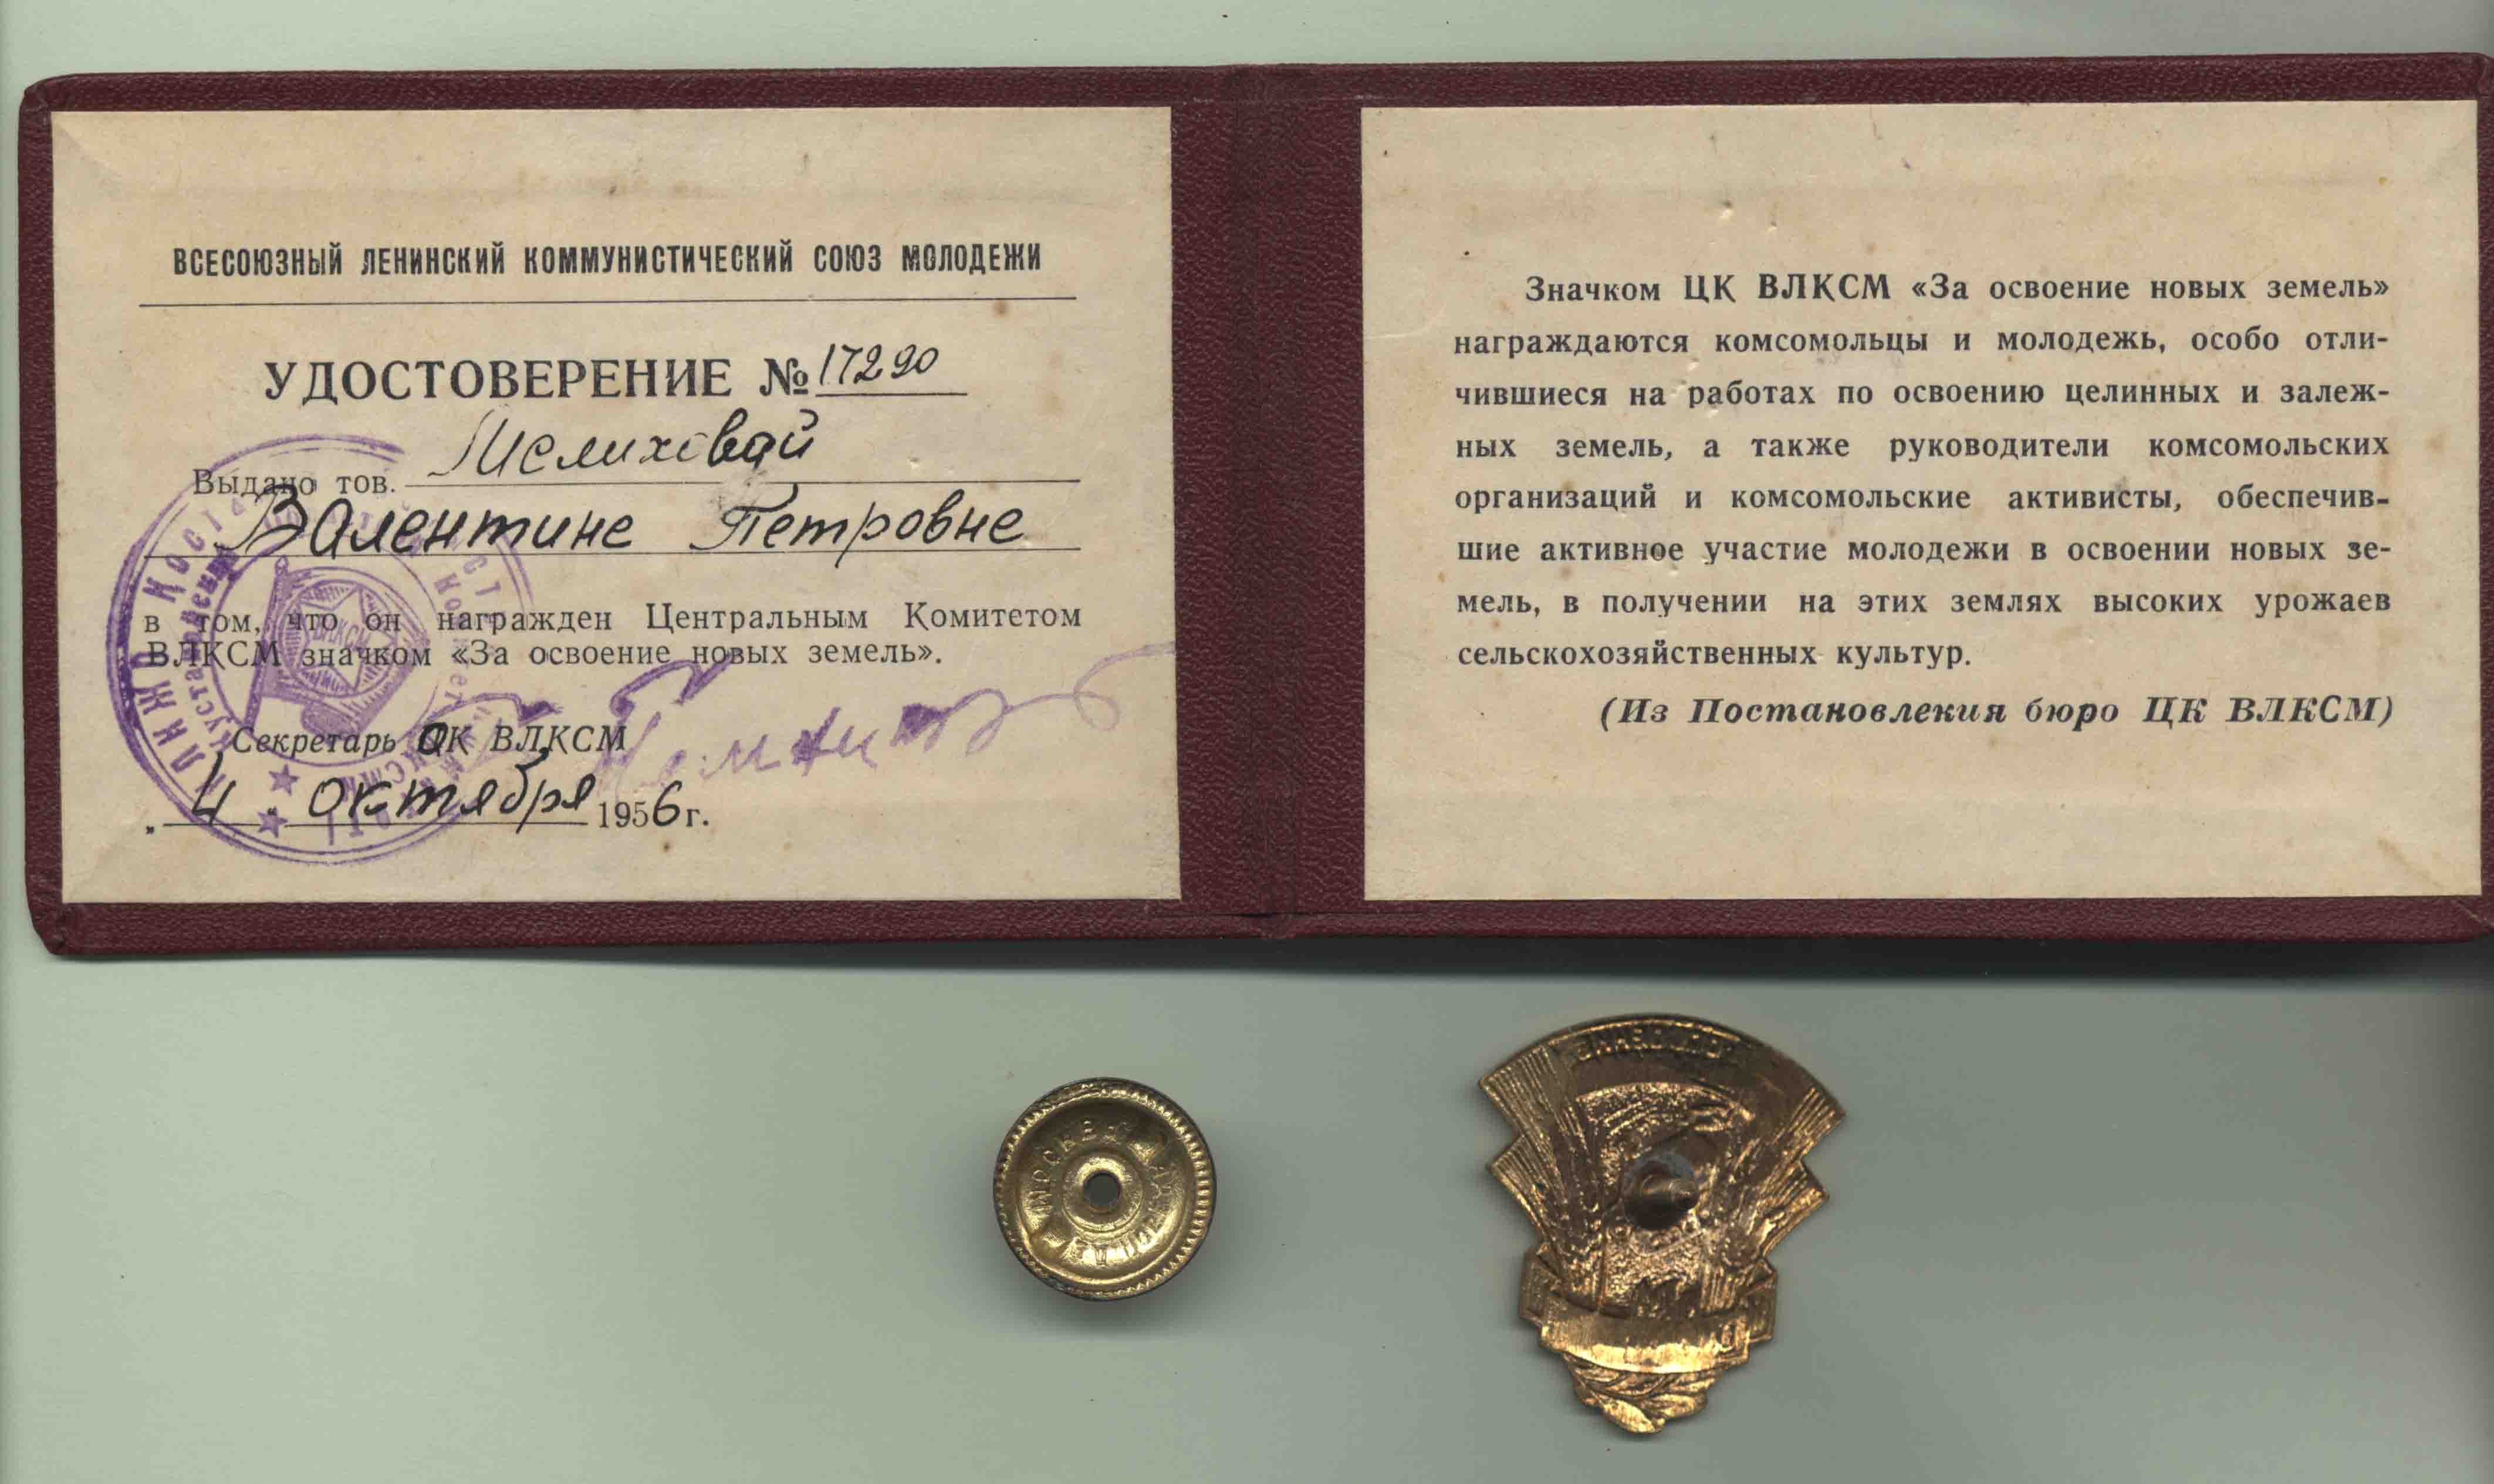 ВСЕСОЮЗНЫЙ ЛЕНИНСКИЙ КОММУНИСТИЧЕСКИЙ СОЮЗ МОЛОДЕЖИ
УДОСТОВЕРЕНИЕ № 17290
Выдано тов. Шелиховой
Валентине Петровне
в том, что он награжден Центральным Комитетом
ВЛКСМ значком «За освоение новых земель».
Секретарь ОК ВЛКСМ
„4" октября 1956 г.
Значком ЦК ВЛКСМ «За освоение новых земель»
награждаются комсомольцы и молодежь, особо отли-
чившиеся на работах по освоению целинных и залеж-
ных земель, а также руководители комсомольских
организаций и комсомольские активисты, обеспечив-
шие активное участие молодежи в освоении новых зе-
мель, в получении на этих землях высоких урожаев
сельскохозяйственных культур.
(Из Постановления бюро ЦК ВЛКСМ)